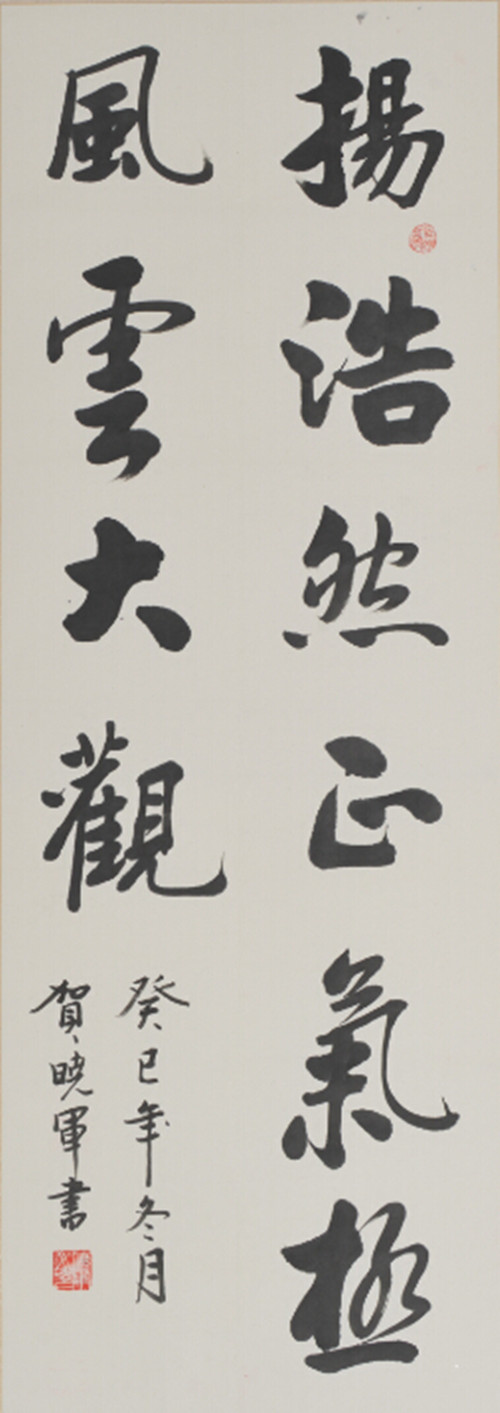 揚浩然正氣極
風雲大觀
癸巳年冬月
賀曉軍書